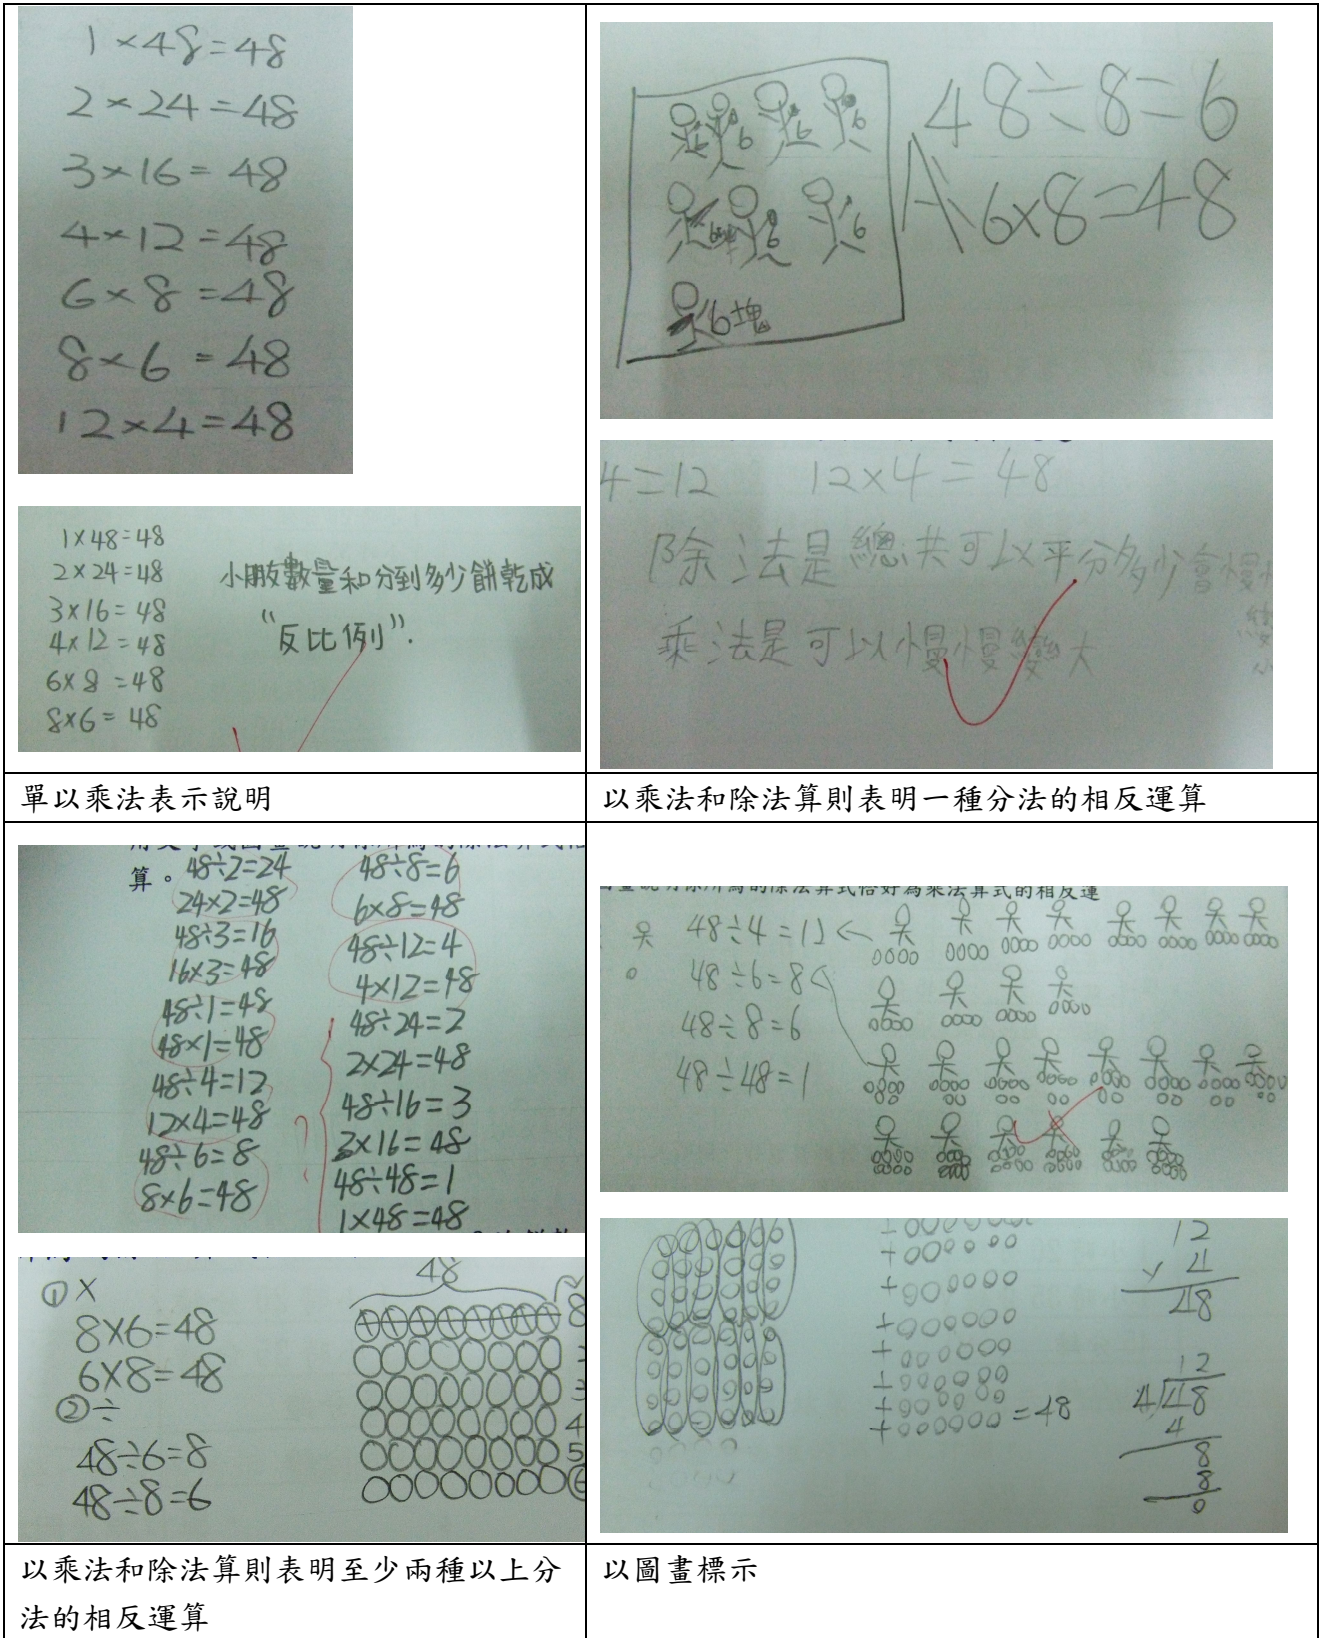 1×48=48
2×24=48
3×16=48
4×12=48
6×8=48
8×6=48
12×4=48
1×48=48
2×24=48
3×16=48
4×12=48
6×8=48
8×6=48
小朋友數量和分到多少餅乾成
“反比例”.
單以乘法表示說明
48÷8=6
A:6×8=48
6
6
6
6
6
6
6塊
4=12
12×4=48
除法是總共可以平分多少會慢
變
小
乘法是可以慢慢變大
以乘法和除法算則表明一種分法的相反運算
算。
48÷2=24
24×2=48
48÷3=16
16×3=48
48÷1=48
48×1=48
48÷4=12
12×4=48
48÷6=8
8×6=48
48÷8=6
6×8=48
48÷12=4
4×12=48
48÷24=2
2×24=48
48÷16=3
3×16=48
48÷48=1
1×48=48
?
①×
8×6=48
6×8=48
②÷
48÷6=8
48÷8=6
48
8
3
4
5
6
以乘法和除法算則表明至少兩種以上分
法的相反運算
畫說明你所寫的除法算式恰好為乘法算式的相反運
48÷4=12
48÷6=8
48÷8=6
48÷48=1
=48
12
× 4
48
12
4)48
4
8
8
0
以圖畫標示